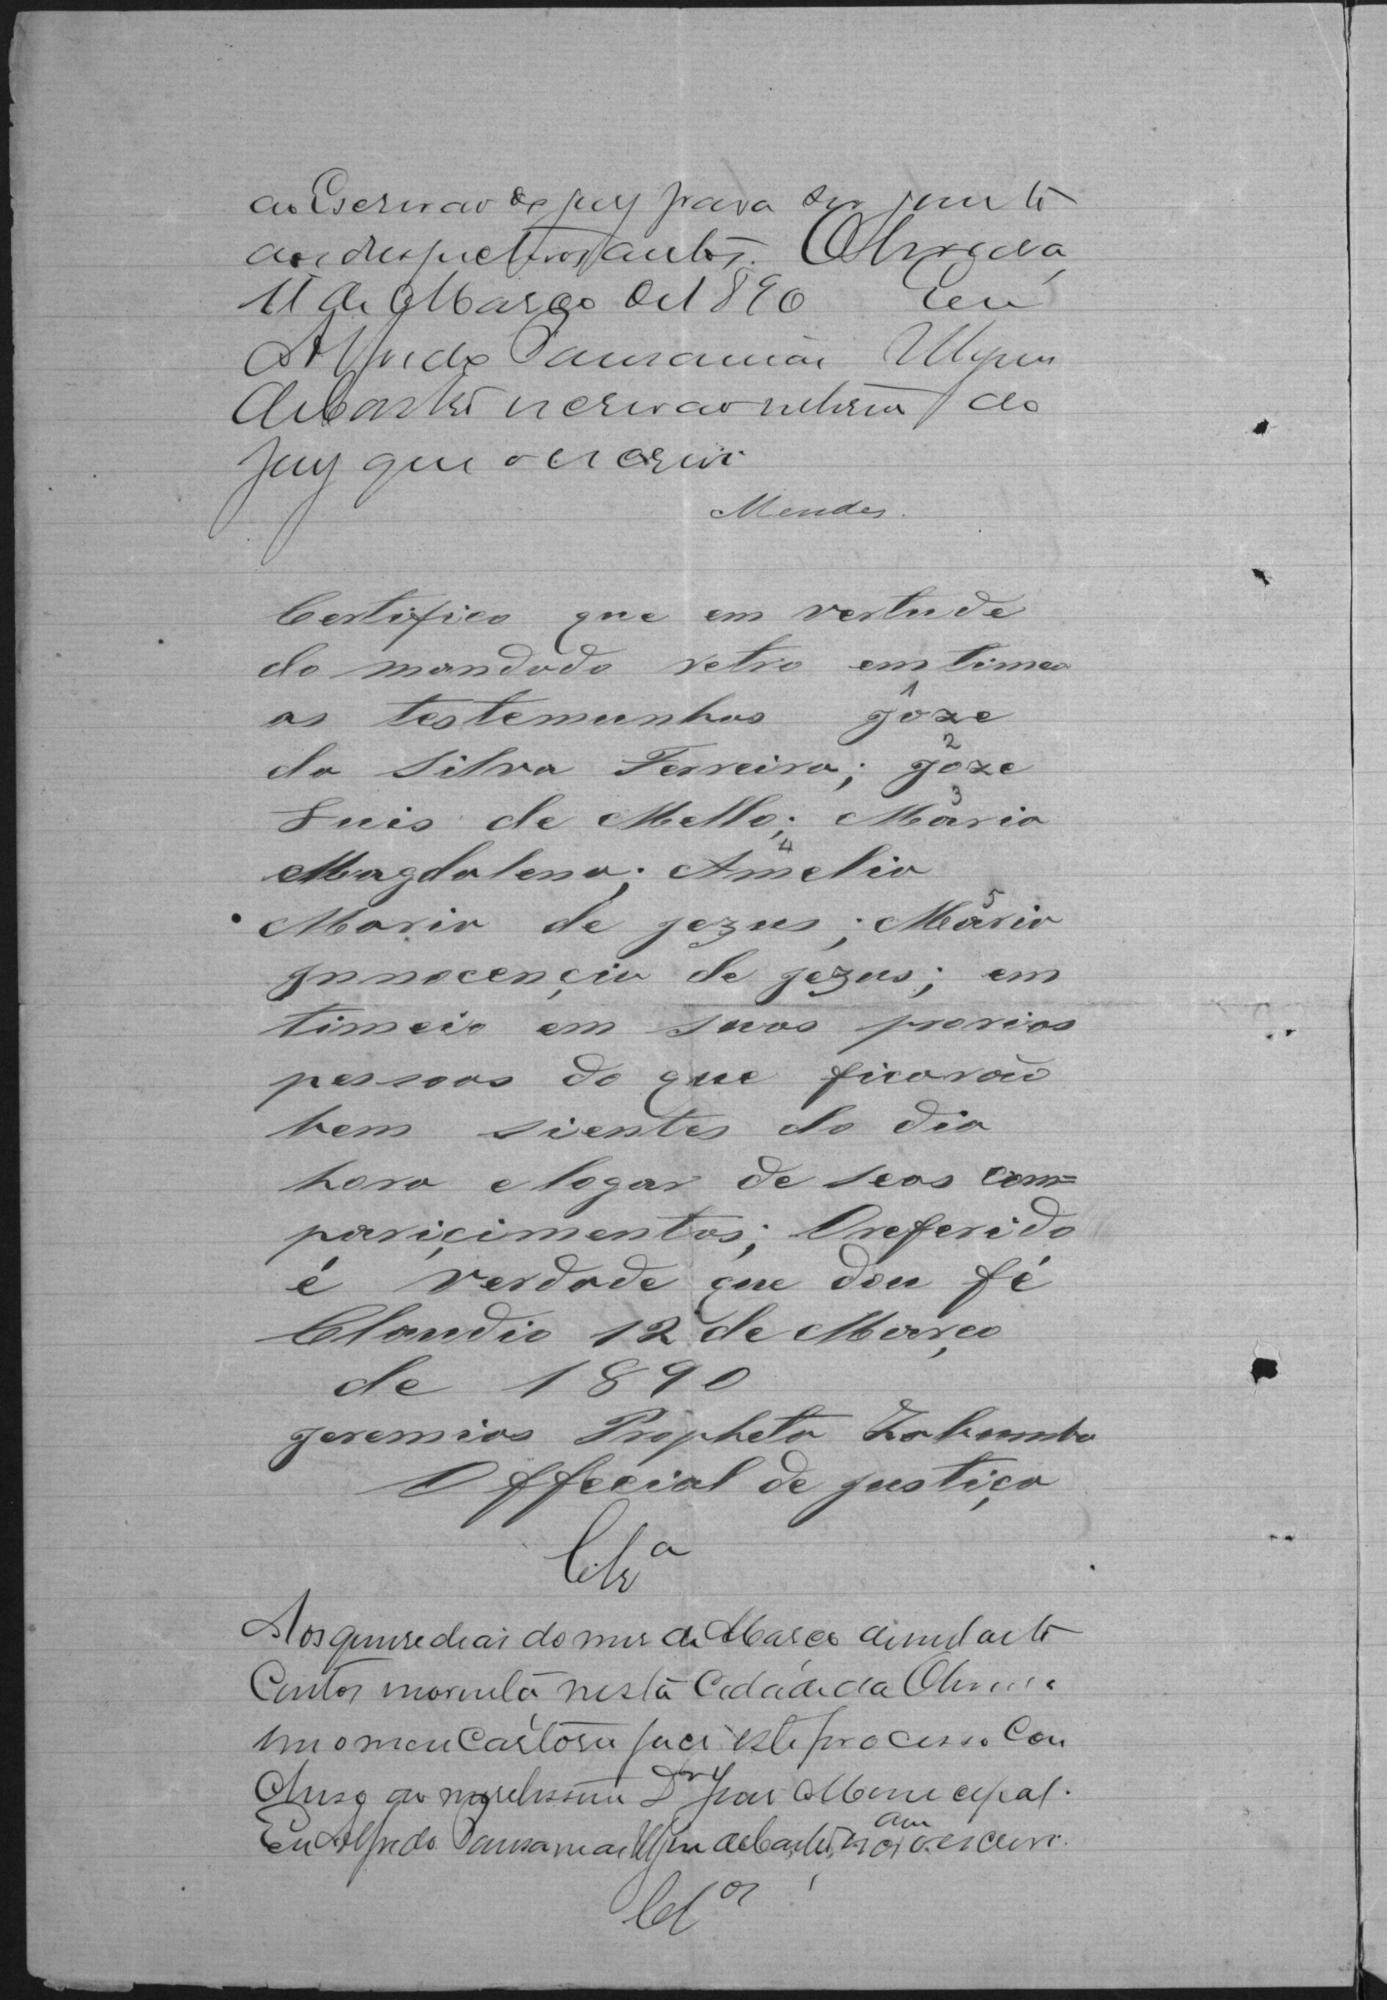 ao Escrivao do jury para ser junto
aos respectivos autos. Oliveira,
11 de Março de 1890 Eeu
Alfredo Pausanias
de Castro escrivao interino do
jury que o escrevi.
Mendes.
Certifico que em vertude
do mandado retro em timei
as testemunhas 1 Joze
da Silva Ferreira; 2 Joze
Luis de Mello; 3 Maria
Magdalena; 4 Amelia
Maria de jezus; 5 Maria
Innocençia de jezus; em
timeio em suas prorias
pessoas do que ficarão
bem sientes do dia
hora e logar de seos com=
pariçimentos; O referido
é verdade que dou fé
Claudio 12 de Março
de 1890
jeremias Propheta Zabumba
Offecial de justiça
Clza
Aos quinse dias do mes de Março de mil oito
Centos e noventa nesta Cidade da Oliveira
em o meu Cartorio faço este processo Con
cluso ao Dr Juis Municipal.
Eu Alfredo Pausanias de Castro, escrivam o escrevi.
Clos